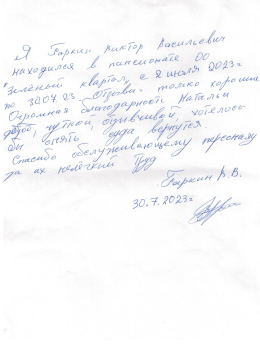 Я Тыркин Виктор Васильевич
находился в пансионате ОО
Зелёный квартал, с 2 июля 2023г
по 30.07.23 Отзывы только хорошие
Огромная благодарность Наталье
чуткой, отзывчивой, хотелось
бы опять сюда вернуться.
Спасибо обслуживающему персоналу
за их нелёгкий труд
Тыркин В.В.
30.7.2023г